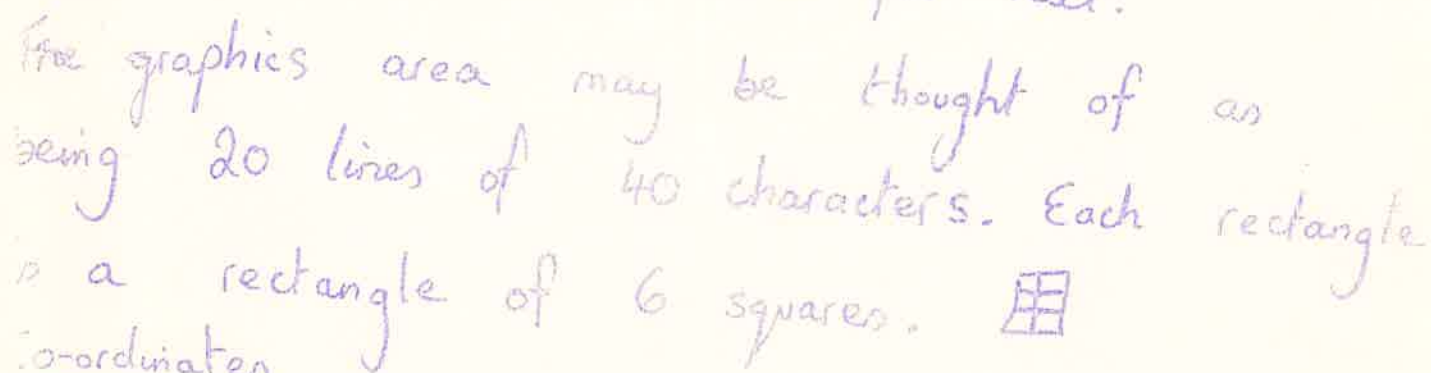 The graphics area may be thought of as
being 20 lines of 40 characters. Each rectangle
is a rectangle of 6 squares.
co-ordinates